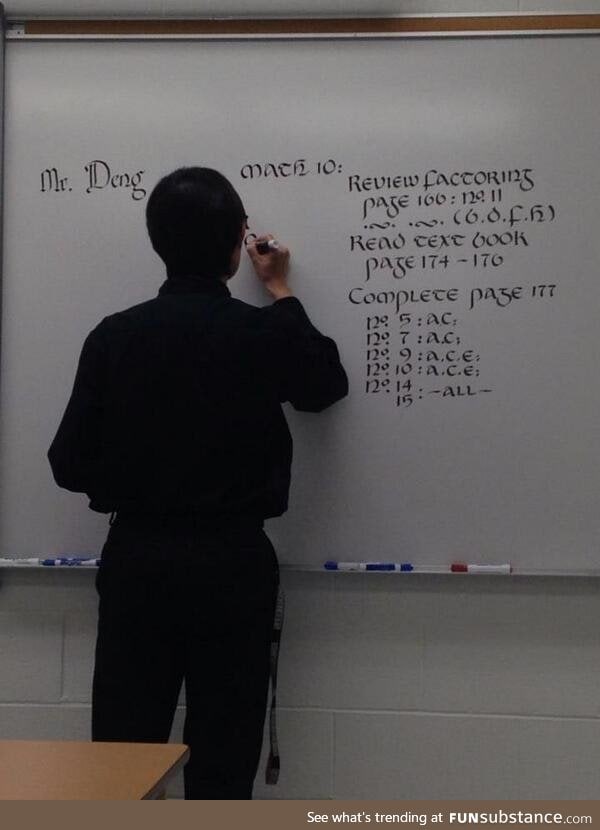 Mr. Deng
Math 10:
Review factoring
page 166: no. 11
.~. .~. (b.d.f.h)
Read text book
page 174 - 176
Complete page 177
no. 5: a.c;
no. 7: a.c;
no. 9: a.c.e;
no. 10: a.c.e;
no. 14
15: -all-
See what's trending at FUNsubstance.com